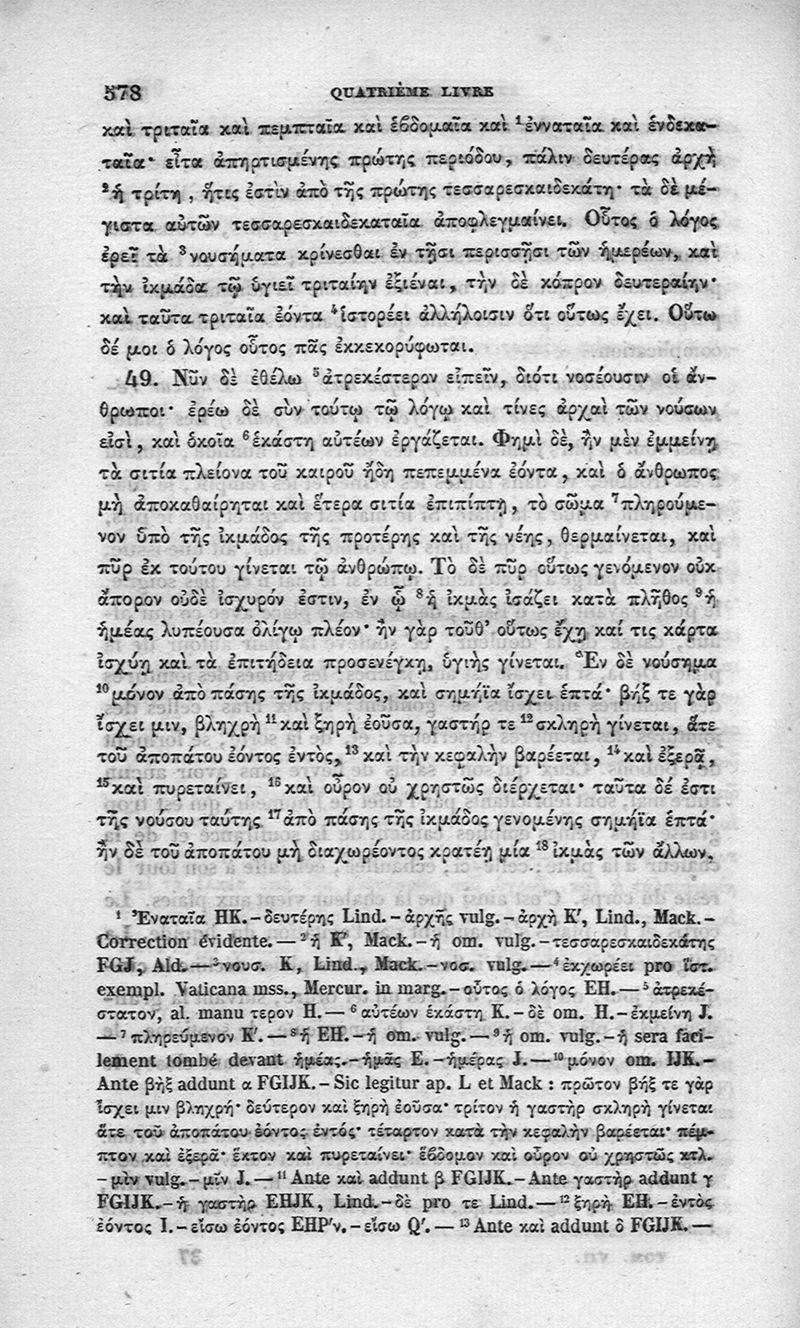 578 QUATRIÈME LIVRE
καὶ τριταῖα καὶ πεμπταῖα καὶ ἑβδομαῖα καὶ ¹ἐνναταῖα καὶ ἑνδεκα-
ταῖα· εἶτα ἀπηρτισμένης πρώτης περιόδου, πάλιν δευτέρας ἀρχὴ
²ἡ τρίτη, ἥτις ἐστὶν ἀπὸ τῆς πρώτης τεσσαρεσκαιδεκάτη· τὰ δὲ μέ-
γιστα αὐτῶν τεσσαρεσκαιδεκαταῖα ἀποφλεγμαίνει. Οὗτος ὁ λόγος
ἐρεῖ τὰ ³νουσήματα κρίνεσθαι ἐν τῇσι περισσῇσι τῶν ἡμερέων, καὶ
τὴν ἰκμάδα τῷ ὑγιεῖ τριταίην ἐξιέναι, τὴν δὲ κόπρον δευτεραίην·
καὶ ταῦτα τριταῖα ἐόντα ⁴ἱστορέει ἀλλήλοισιν ὅτι οὕτως ἔχει. Οὕτω
δέ μοι ὁ λόγος οὗτος πᾶς ἐκκεκορύφωται.
49. Νῦν δὲ ἐθέλω ⁵ἀτρεκέστερον εἰπεῖν, διότι νοσέουσιν οἱ ἄν-
θρωποι· ἐρέω δὲ σὺν τούτῳ τῷ λόγῳ καὶ τίνες ἀρχαὶ τῶν νούσων
εἰσὶ, καὶ ὁκοῖα ⁶ἑκάστη αὐτέων ἐργάζεται. Φημὶ δὲ, ἢν μὲν ἐμμείνῃ
τὰ σιτία πλείονα τοῦ καιροῦ ἤδη πεπεμμένα ἐόντα, καὶ ὁ ἄνθρωπος
μὴ ἀποκαθαίρηται καὶ ἕτερα σιτία ἐπιπίπτῃ, τὸ σῶμα ⁷πληρούμε-
νον ὑπὸ τῆς ἰκμάδος τῆς προτέρης καὶ τῆς νέης, θερμαίνεται, καὶ
πῦρ ἐκ τούτου γίνεται τῷ ἀνθρώπῳ. Τὸ δὲ πῦρ οὕτως γενόμενον οὐκ
ἄπορον οὐδὲ ἰσχυρόν ἐστιν, ἐν ᾧ ⁸ἡ ἰκμὰς ἰσάζει κατὰ πλῆθος ⁹ἡ
ἡμέας λυπέουσα ὀλίγῳ πλέον· ἢν γὰρ τοῦθ' οὕτως ἔχῃ καί τις κάρτα
ἰσχύῃ καὶ τὰ ἐπιτήδεια προσενέγκῃ, ὑγιὴς γίνεται. Ἓν δὲ νούσημα
¹⁰μόνον ἀπὸ πάσης τῆς ἰκμάδος, καὶ σημήϊα ἴσχει ἑπτά· βήξ τε γὰρ
ἴσχει μιν, βληχρὴ ¹¹καὶ ξηρὴ ἐοῦσα, γαστήρ τε ¹²σκληρὴ γίνεται, ἅτε
τοῦ ἀποπάτου ἐόντος ἐντὸς, ¹³καὶ τὴν κεφαλὴν βαρέεται, ¹⁴καὶ ἐξερᾷ,
¹⁵καὶ πυρεταίνει, ¹⁶καὶ οὖρον οὐ χρηστῶς διέρχεται· ταῦτα δέ ἐστι
τῆς νούσου ταύτης ¹⁷ἀπὸ πάσης τῆς ἰκμάδος γενομένης σημήϊα ἑπτά·
ἢν δὲ τοῦ ἀποπάτου μὴ διαχωρέοντος κρατέῃ μία ¹⁸ἰκμὰς τῶν ἄλλων,
¹ Ἐναταῖα HK.–δευτέρης Lind.–ἀρχῆς vulg.–ἀρχὴ K′, Lind., Mack.–
Correction évidente.—²ἡ K′, Mack.–ἡ om. vulg.–τεσσαρεσκαιδεκάτης
FGJ, Ald.—³νουσ. K, Lind., Mack.–νοσ. vulg.—⁴ἐκχωρέει pro ἱστ.
exempl. Vaticana mss., Mercur. in marg.–οὗτος ὁ λόγος EH.—⁵ἀτρεκέ-
στατον, al. manu τερον H.—⁶αὐτέων ἑκάστη K.–δὲ om. H.–ἐκμείνῃ J.
—⁷πληρεύμενον K′.—⁸ἡ EH.–ἡ om. vulg.—⁹ἡ om. vulg.–ἡ sera faci-
lement tombé devant ἡμέας.–ἡμᾶς E.–ἡμέρας J.—¹⁰μόνον om. IJK.–
Ante βὴξ addunt α FGIJK.–Sic legitur ap. L et Mack : πρῶτον βήξ τε γὰρ
ἴσχει μιν βληχρή· δεύτερον καὶ ξηρὴ ἐοῦσα· τρίτον ἡ γαστὴρ σκληρὴ γίνεται
ἅτε τοῦ ἀποπάτου ἐόντος ἐντός· τέταρτον κατὰ τὴν κεφαλὴν βαρέεται· πέμ-
πτον καὶ ἐξερᾷ· ἕκτον καὶ πυρεταίνει· ἕβδομον καὶ οὖρον οὐ χρηστῶς κτλ.
–μὶν vulg.–μῖν J.—¹¹Ante καὶ addunt β FGIJK.–Ante γαστὴρ addunt γ
FGIJK.–ἡ γαστὴρ EHJK, Lind.–δὲ pro τε Lind.—¹²ξηρὴ EH.–ἐντὸς
ἐόντος I.–εἴσω ἐόντος EHP′ν.–εἴσω Q′.—¹³Ante καὶ addunt δ FGIJK.—